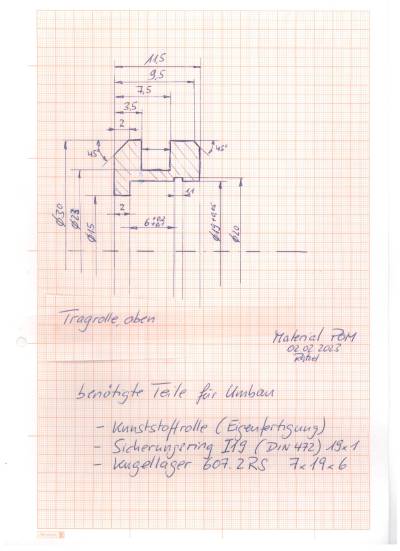 11,5
9,5
7,5
3,5
2
45°
45°
1,1
2
6
Ø30
Ø23
Ø15
Ø19
Ø20
Tragrolle, oben
Material POM
02.02.2023
benötigte Teile für Umbau
- Kunststoffrolle (Eigenfertigung)
- Sicherungsring I19 (DIN 472) 19x1
- Kugellager 607.2RS 7x19x6